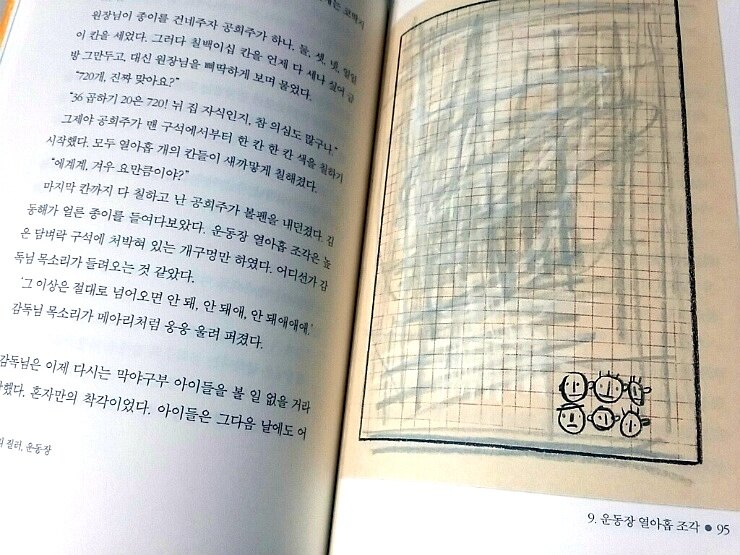 원장님이 종이를 건네주자 공희주가 하나, 둘, 셋, 넷, 일일
이 칸을 세었다. 그러다 칠백이십 칸을 언제 다 세나 싶어 금
방 그만두고, 대신 원장님을 삐딱하게 보며 물었다.
"720개, 진짜 맞아요?"
"36 곱하기 20은 720! 뉘 집 자식인지, 참 의심도 많구나."
그제야 공희주가 맨 구석에서부터 한 칸 한 칸 색을 칠하기
시작했다. 모두 열아홉 개의 칸들이 새까맣게 칠해졌다.
"에계계, 겨우 요만큼이야?"
마지막 칸까지 다 칠하고 난 공희주가 볼펜을 내던졌다. 김
동해가 얼른 종이를 들여다보았다. 운동장 열아홉 조각은 높
은 담벼락 구석에 처박혀 있는 개구멍만 하였다. 어디선가 감
독님 목소리가 들려오는 것 같았다.
'그 이상은 절대로 넘어오면 안 돼, 안 돼애, 안 돼애애애.'
감독님 목소리가 메아리처럼 웅웅 울려 퍼졌다.
감독님은 이제 다시는 막야구부 아이들을 볼 일 없을 거라
했다. 혼자만의 착각이었다. 아이들은 그다음 날에도 어
질러, 운동장
9. 운동장 열아홉 조각 ● 95